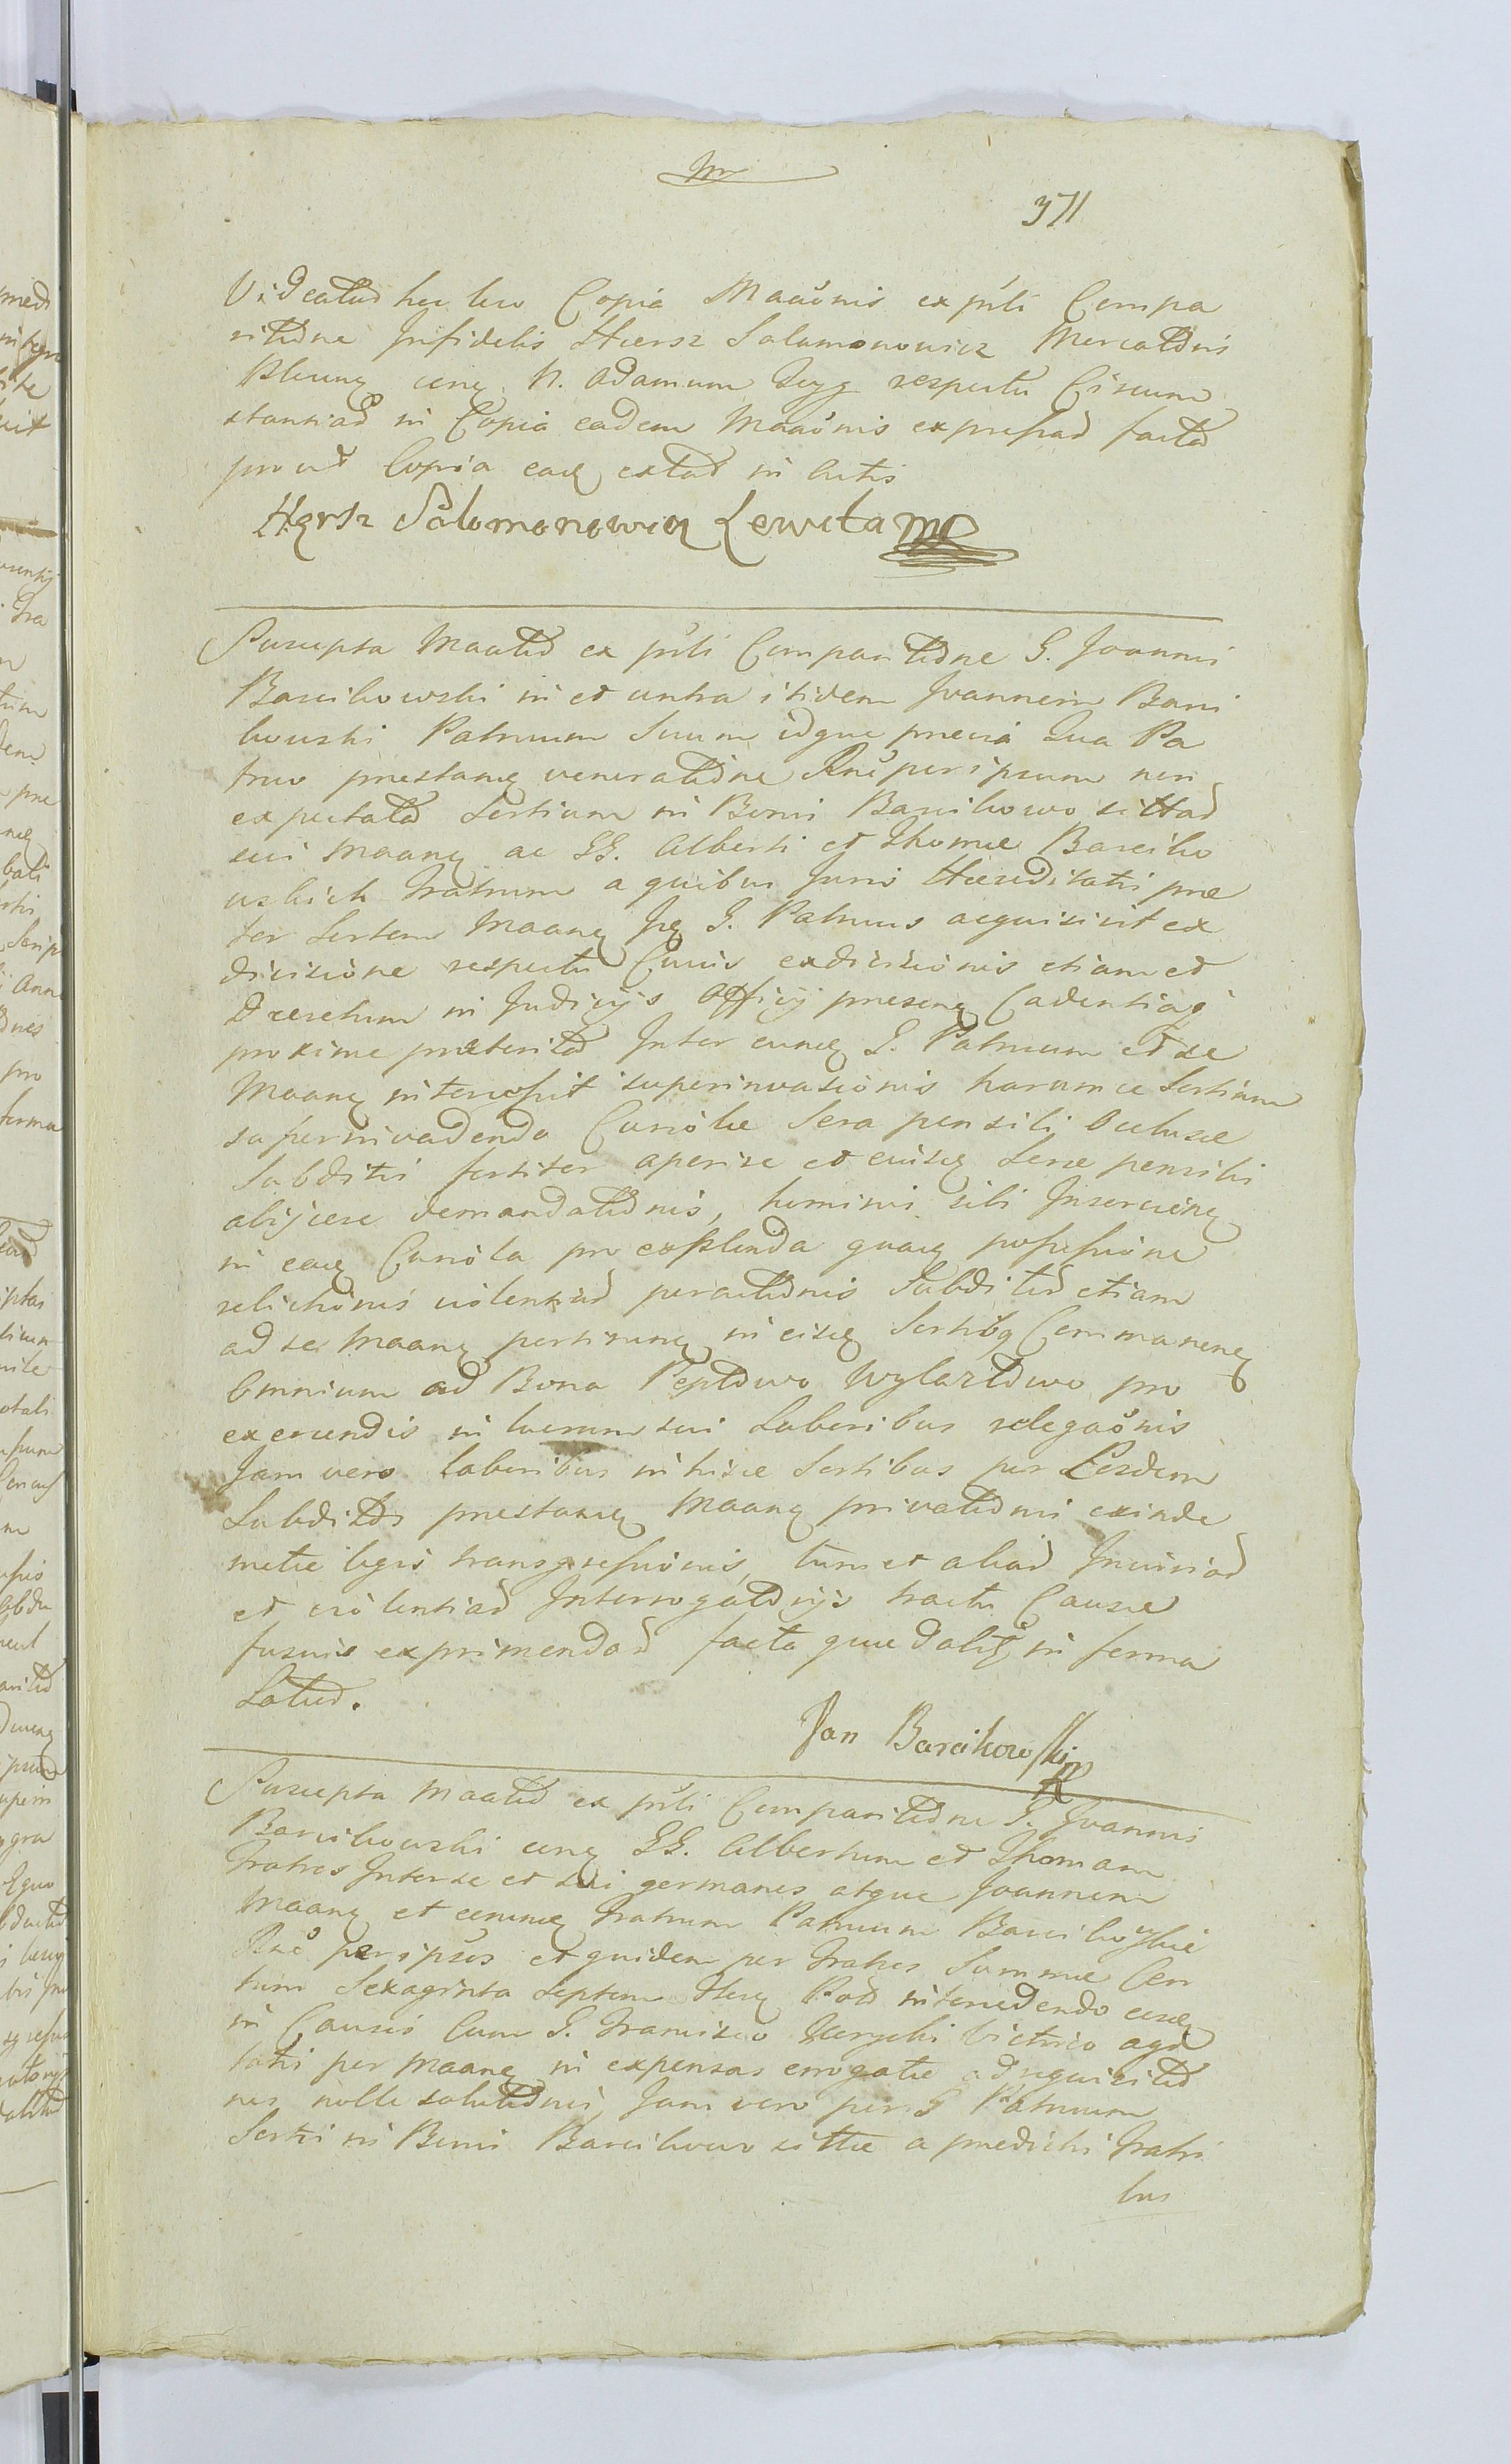 371
Videatur hic loco Copia Maaōnis ex pñti Compa
ritione Infidelis Hersz Salamonowicz Mercatoris
cung N. Adamum Zyg respectu Circum
stantiar in Copia eadem Maaōnis expressar factar
prout Copia eaq extat in Actis
Hersz Salomonowicz Lewita mp
Suscepta Maatio ex pñti Comparitione G. Joannis
Barcikowski in et contra itidem Joannem Barci
kowski Patruum Suum idque previa Qua Pa
truo prestanq veneratione Rnē per ipsum non
expectata Sortium in Bonis Barcikowo sittar
sui Maang ac GG. Alberti et Thomæ Barciko
wskich Fratrum a quibus Juris Hæreditatis præ
ter Sortem Maang Jq G. Patruus acquisivit ex
divisione respectu Cuius exdivisionis etiam et
Decretum in Judicijs Officij presenq Cadentiæ
proxime præterita Inter eunq G. Patruum et se
Maang intercessit superinvasionis harumce Sortium
superinvadendo Curiolæ Sera pensili Oclusæ
Subditis fortiter aperire et eiusq Seræ pensilis
abijcere demandationis, hominis sibi Inservienq
in eaq Curiola pro explenda quasi possessione
relictionis violentiar peractionis Subditor etiam
ad se Maang pertinenq in eisq Sortibq Commanenq
Omnium ad Bona Peptowo Wylaztowo pro
exercendis in lucrum sui Laboribus relegaōnis
Jam vero laboribus in hisce Sortibus per Eosdem
Subditos prestanq Maang privationis exinde
metæ legis transgressionis, tum et aliar Injuriar
et violentiar Interrogatorijs tractu Causæ
fusius exprimendar facta quæ dabitr in forma
Latior.
Jan Barcikowski mp
Suscepta Maatio ex pñti Comparitione G. Joannis
Barcikowski cong GG. Albertum et Thomam
Fratres Inter se et sui germanos atque Joannem
Maang et eorunq Fratrum Patruum Barcikowskie
Rnē per ipsos et quidem per Fratres Summæ Cen
tum Sexaginta Septem flor Pol intercedendo eosq
in Causis Cum G. Francisco Vitrico
per Maang in expensas erogatæ ad requisitio
nes nolle solutionis, Jam vero per G Patruum
Sortis in Bonis Barcikowo sittæ a predictis Fratri
bus